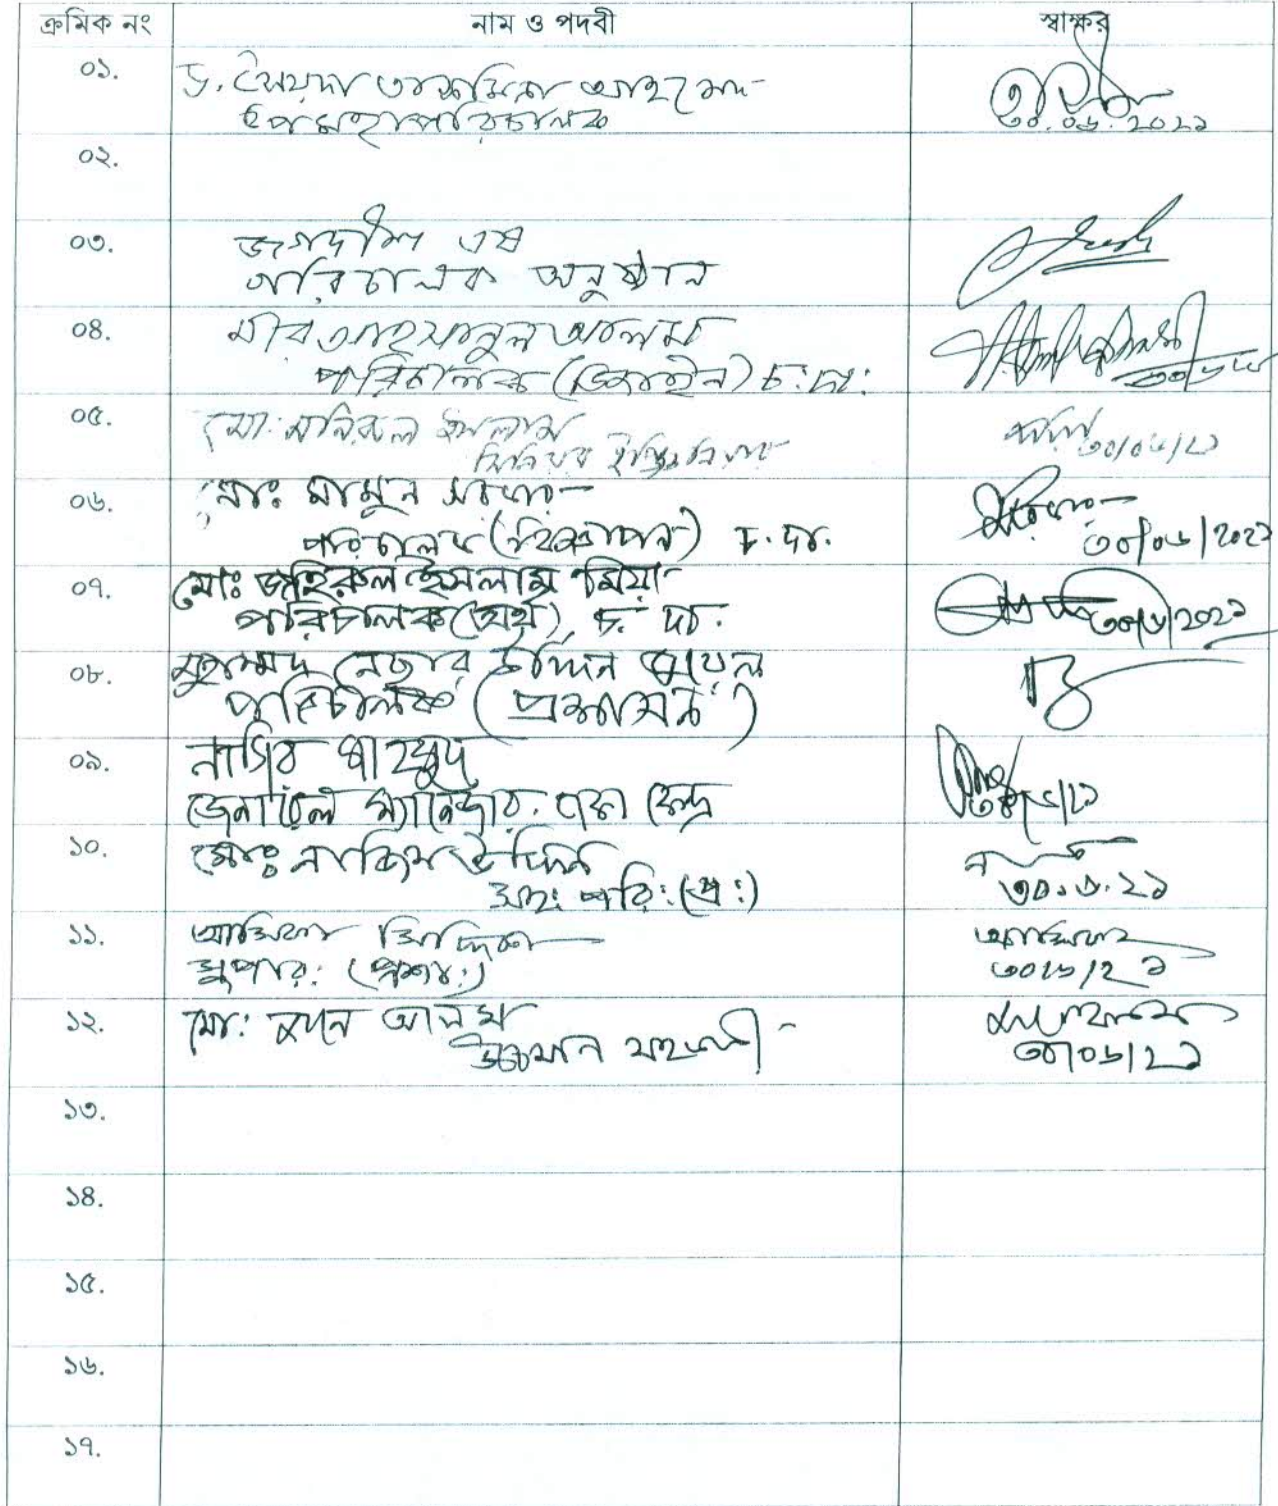 ক্রমিক নং নাম ও পদবী স্বাক্ষর
০১. ড. সৈয়দা তাসমিনা আহমেদ
উপমহাপরিচালক
৩০.০৬.২০২১
০২.
০৩. জগদীশ এষ
পরিচালক অনুষ্ঠান
০৪. মীর আহসানুল আলম
পরিচালক (ডিজাইন) চ:দা:
০৫. মো: মনিরুল ইসলাম
সিনিয়র
৩০/০৬/২১
০৬. মোঃ মামুন
পরিচালক (বিজ্ঞাপন) চ.দা.
৩০/০৬/২০২১
০৭. মোঃ জহিরুল ইসলাম মিয়া
পরিচালক (অর্থ) চ. দা.
৩০/৬/২০২১
০৮. মুহাম্মদ উদ্দিন
পরিচালক (প্রশাসন)
০৯. নাসির মাহমুদ
জেনারেল ম্যানেজার. ঢাকা কেন্দ্র
১০. মোঃ নাজিম উদ্দিন
সহ: পরি: (প্র:)
৩০.৬.২১
১১. সিদ্দিকা
সুপার: (প্রশা:)
৩০/৬/২১
১২. মো: আলম
উচ্চমান সহকারী
৩০/০৬/২১
১৩.
১৪.
১৫.
১৬.
১৭.